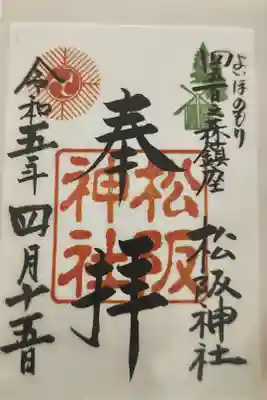 よいほのもり
四五百之森鎮座
松阪神社
奉拝
松阪神社
令和五年四月十五日